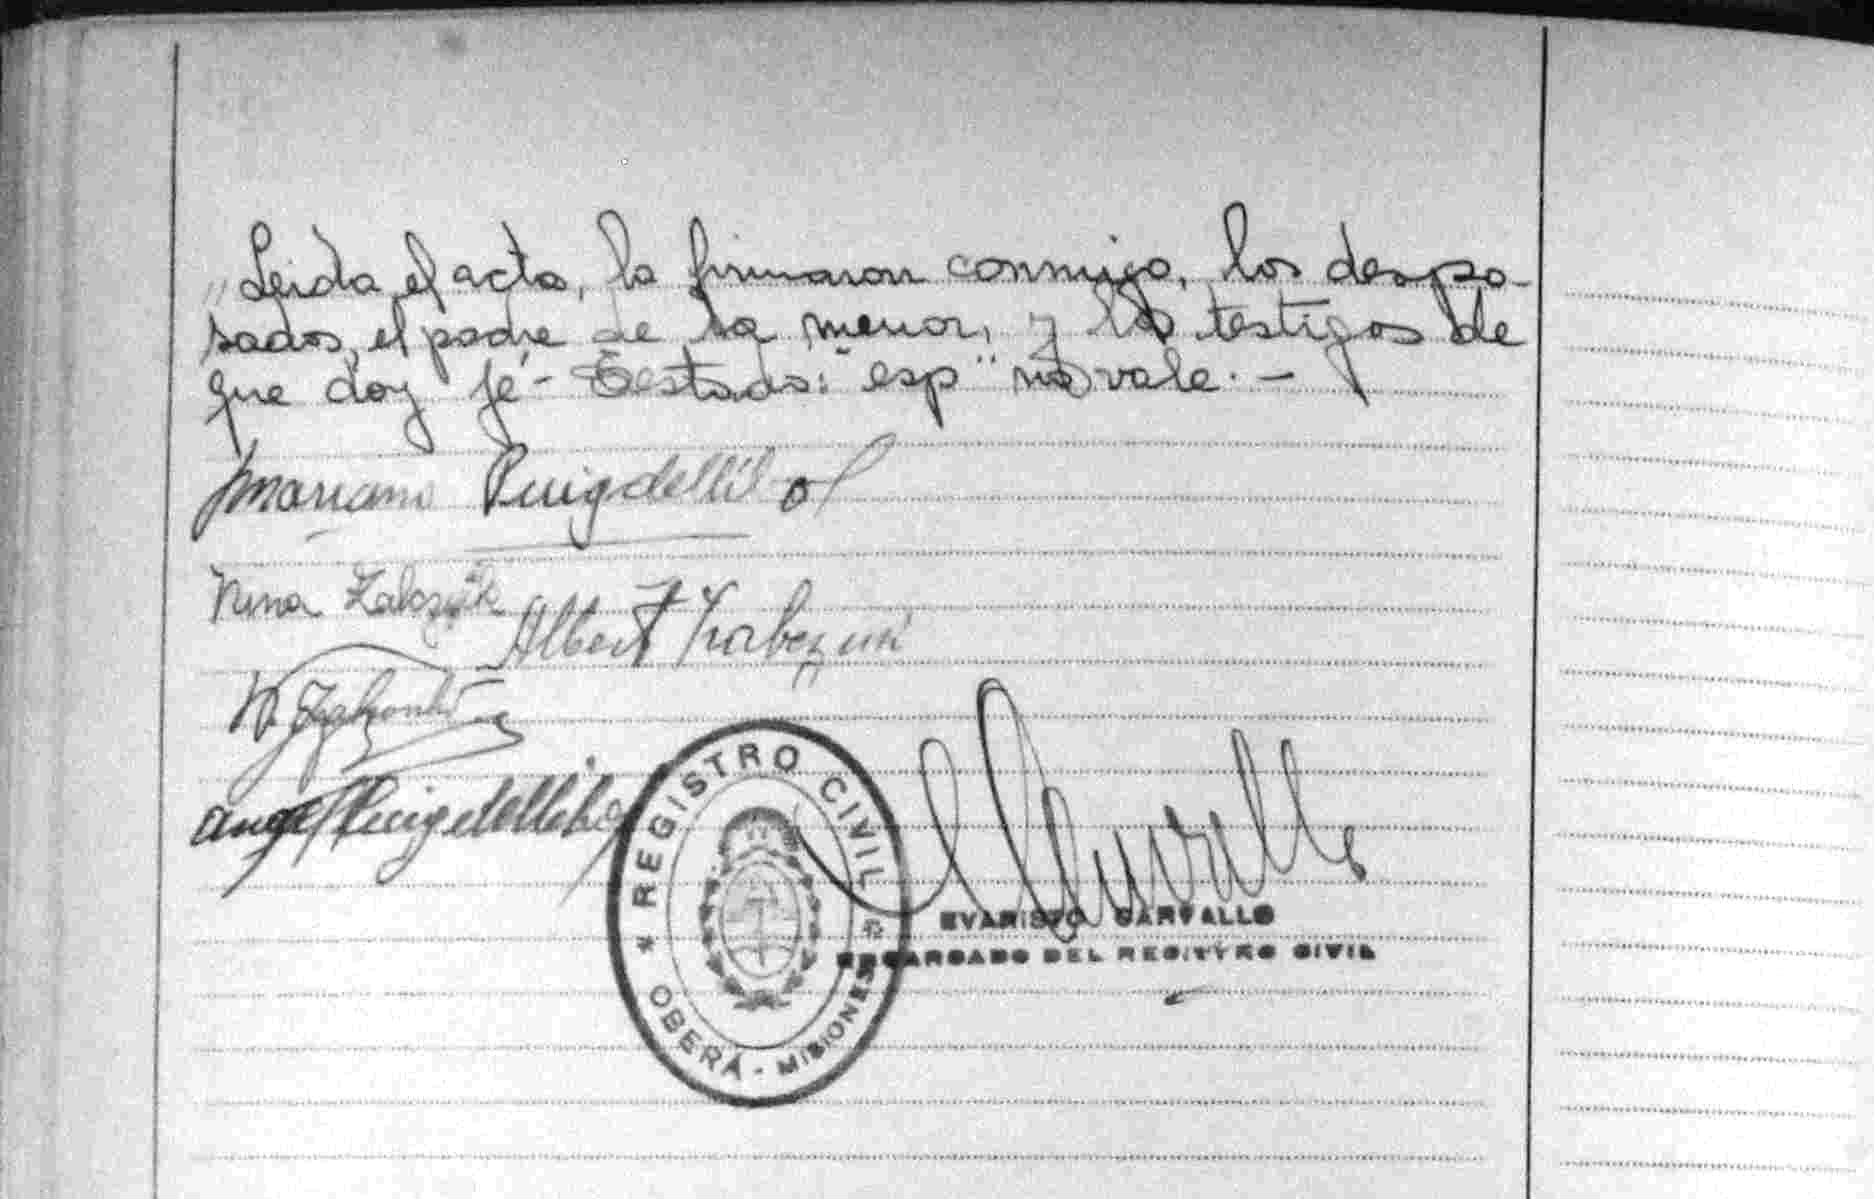 "Leida el acta, la firmaron conmigo, los despo-
sados, el padre de la menor, y los testigos de
que doy fé - Testado: "esp" no vale. -
Mariano Puigdellibol
Nina Zalczuk
Albert
Angel Puigdellibol
REGISTRO CIVIL
OBERÁ - MISIONES
EVARISTO CARVALLO
ENCARGADO DEL REGISTRO CIVIL